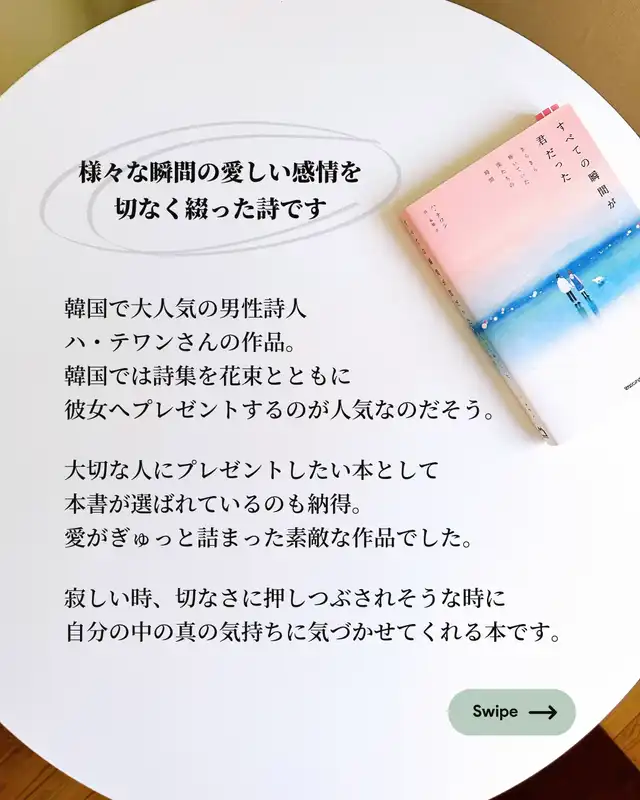 様々な瞬間の愛しい感情を
切なく綴った詩です
すべての瞬間が
君だった
きらきら
輝いていた
僕たちの
時間
ハ・テワン
韓国で大人気の男性詩人
ハ・テワンさんの作品。
韓国では詩集を花束とともに
彼女へプレゼントするのが人気なのだそう。
大切な人にプレゼントしたい本として
本書が選ばれているのも納得。
愛がぎゅっと詰まった素敵な作品でした。
寂しい時、切なさに押しつぶされそうな時に
自分の中の真の気持ちに気づかせてくれる本です。
Swipe